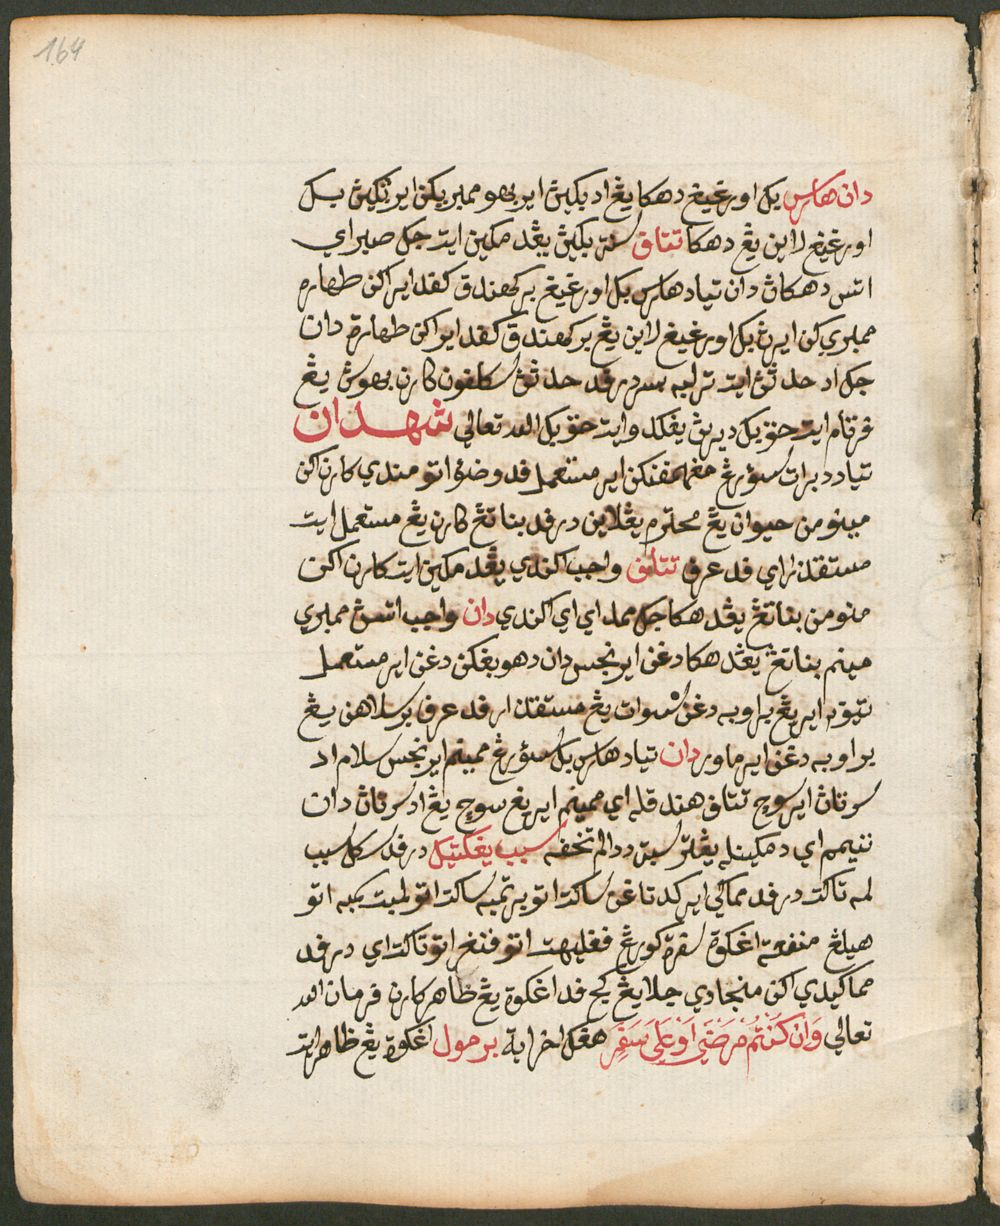 164
دان هارس بڬ اورڠيڠ دهكا يڠ اد بكيڽ اير بهو ممبريكن اير بكيڽ بڬ
اورڠيڠ لاين يڠ دهكا تتاڤ سنة بكيڽ يڠدمكين ايت جك صبر اي
اتس دهكاڽ دان تياد هارس بڬ اورڠيڠ بركهندق كفد اير اكن طهارة
ممبريكن ايرڽ بڬ اورڠيڠ لاين يڠ بركهندق كفد اير اكن طهارة دان
جك اد حدثڽ ايت ترلبه بسر درفد حدثڽ سكلفون كارن بهوسڽ يڠ
فرتام ايت حق بڬ ديرڽ يڠكدوا ايت حق بڬ الله تعالى شهدان
تياد دبراتسؤرڠ مڠهمفنكن اير مستعمل فد وضوء اتو مندي كارن اكن
مينومن حيوان يڠ محترم يڠلاين درفد بناتڠ كارن يڠ مستعمل ايت
مستقذر اي فد عرف تتاڤ واجب اكندي يڠدمكين ايت كارن اكن
منومن بناتڠ يڠ دهكا جك ممداي اي اكندي دان واجب اتسڽ ممبري
مينم بناتڠ يڠ دهكا دڠن اير نجس دان دهوبڠكن دڠن اير مستعمل
تتڤ اير يڠ براوبه دڠن سسوات يڠ مستقذر فد عرف برسلاهن يڠ
براوبه دڠن اير ماور دان تياد هارس بڬ سؤرڠ ممينم اير نجس سلام اد
سرتاڽ اير سوچ تتاڤ هندقله اي ممينم اير يڠ سوچ يڠ اد سرتاڽ دان
تيمم اي دمكينله يڠترسبت ددالم تحفة سبب يڠكتيڬ درفد سڬل سبب
له تاكت درفد مماكي اير كدتاڠن ساكت اتو برتمبه ساكت اتو لمبت سمبه اتو
هيلڠ منفعة اڠڬوة سفرة كورڠ ڤڠليهت اتو ڤنڠر اتو تاكت اي درفد
مماكيدي اكن منجادي چلا يڠ كجي فد اڠڬوة يڠ ظاهر كارن فرمان الله
تعالى وَاِنْ كُنْتُمْ مَرْضَى اَوْ عَلَى سَفَرٍ هڠڬ اخر اية برمول اڠڬوة يڠ ظاهر ايت